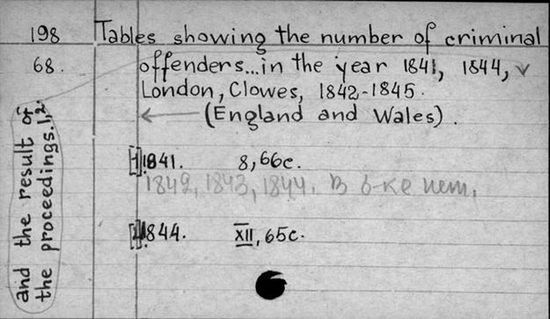 198 Tables showing the number of criminal
68. offenders...in the year 1841, 1844, v
London, Clowes, 1842-1845.
← (England and Wales).
and the result of
the proceedings. 1,2.
[1] 1841. 8, 66с.
1842, 1843, 1844. В б-ке нет.
[4] 1844. XII, 65с.